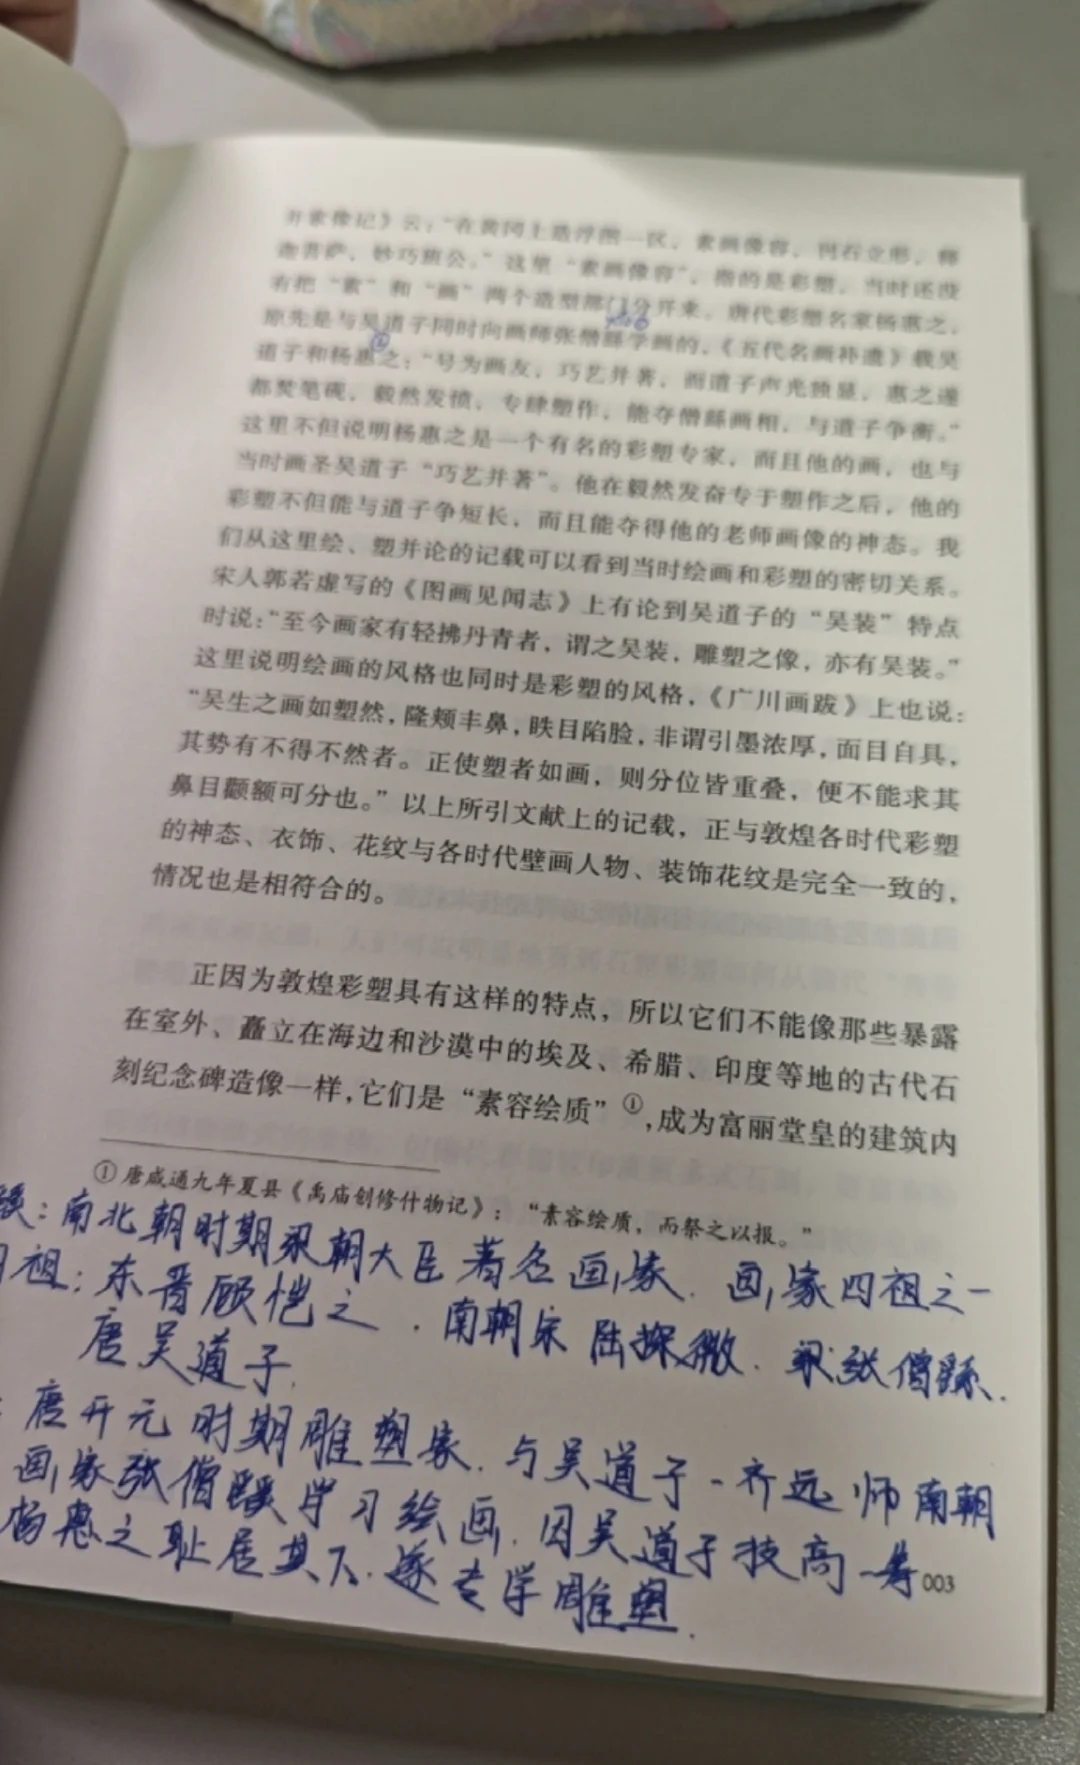 云："在黄冈上造浮图一区，素画像容，刊石立形，释
迦菩萨，妙巧班公。"这里"素画像容"，指的是彩塑，当时还没
有把"素"和"画"两个造型部门分开来。唐代彩塑名家杨惠之，
原先是与吴道子同时向画师张僧繇学画的，《五代名画补遗》载吴
道子和杨惠之："号为画友，巧艺并著，而道子声光独显，惠之遂
都焚笔砚，毅然发愤，专肆塑作，能夺僧繇画相，与道子争衡。"
这里不但说明杨惠之是一个有名的彩塑专家，而且他的画，也与
当时画圣吴道子"巧艺并著"。他在毅然发奋专于塑作之后，他的
彩塑不但能与道子争短长，而且能夺得他的老师画像的神态。我
们从这里绘、塑并论的记载可以看到当时绘画和彩塑的密切关系。
宋人郭若虚写的《图画见闻志》上有论到吴道子的"吴装"特点
时说："至今画家有轻拂丹青者，谓之吴装，雕塑之像，亦有吴装。"
这里说明绘画的风格也同时是彩塑的风格，《广川画跋》上也说：
"吴生之画如塑然，隆颊丰鼻，眣目陷脸，非谓引墨浓厚，面目自具，
其势有不得不然者。正使塑者如画，则分位皆重叠，便不能求其
鼻目颧额可分也。"以上所引文献上的记载，正与敦煌各时代彩塑
的神态、衣饰、花纹与各时代壁画人物、装饰花纹是完全一致的，
情况也是相符合的。
正因为敦煌彩塑具有这样的特点，所以它们不能像那些暴露
在室外、矗立在海边和沙漠中的埃及、希腊、印度等地的古代石
刻纪念碑造像一样，它们是"素容绘质"①，成为富丽堂皇的建筑内
① 唐咸通九年夏县《禹庙创修什物记》："素容绘质，而祭之以报。"
：南北朝时期梁朝大臣著名画家．画家四祖之一
祖：东晋顾恺之．南朝宋陆探微．梁张僧繇．
唐吴道子．
：唐开元时期雕塑家．与吴道子一齐远师南朝
画家张僧繇学习绘画．因吴道子技高一筹
杨惠之耻居其下．遂专学雕塑．
003